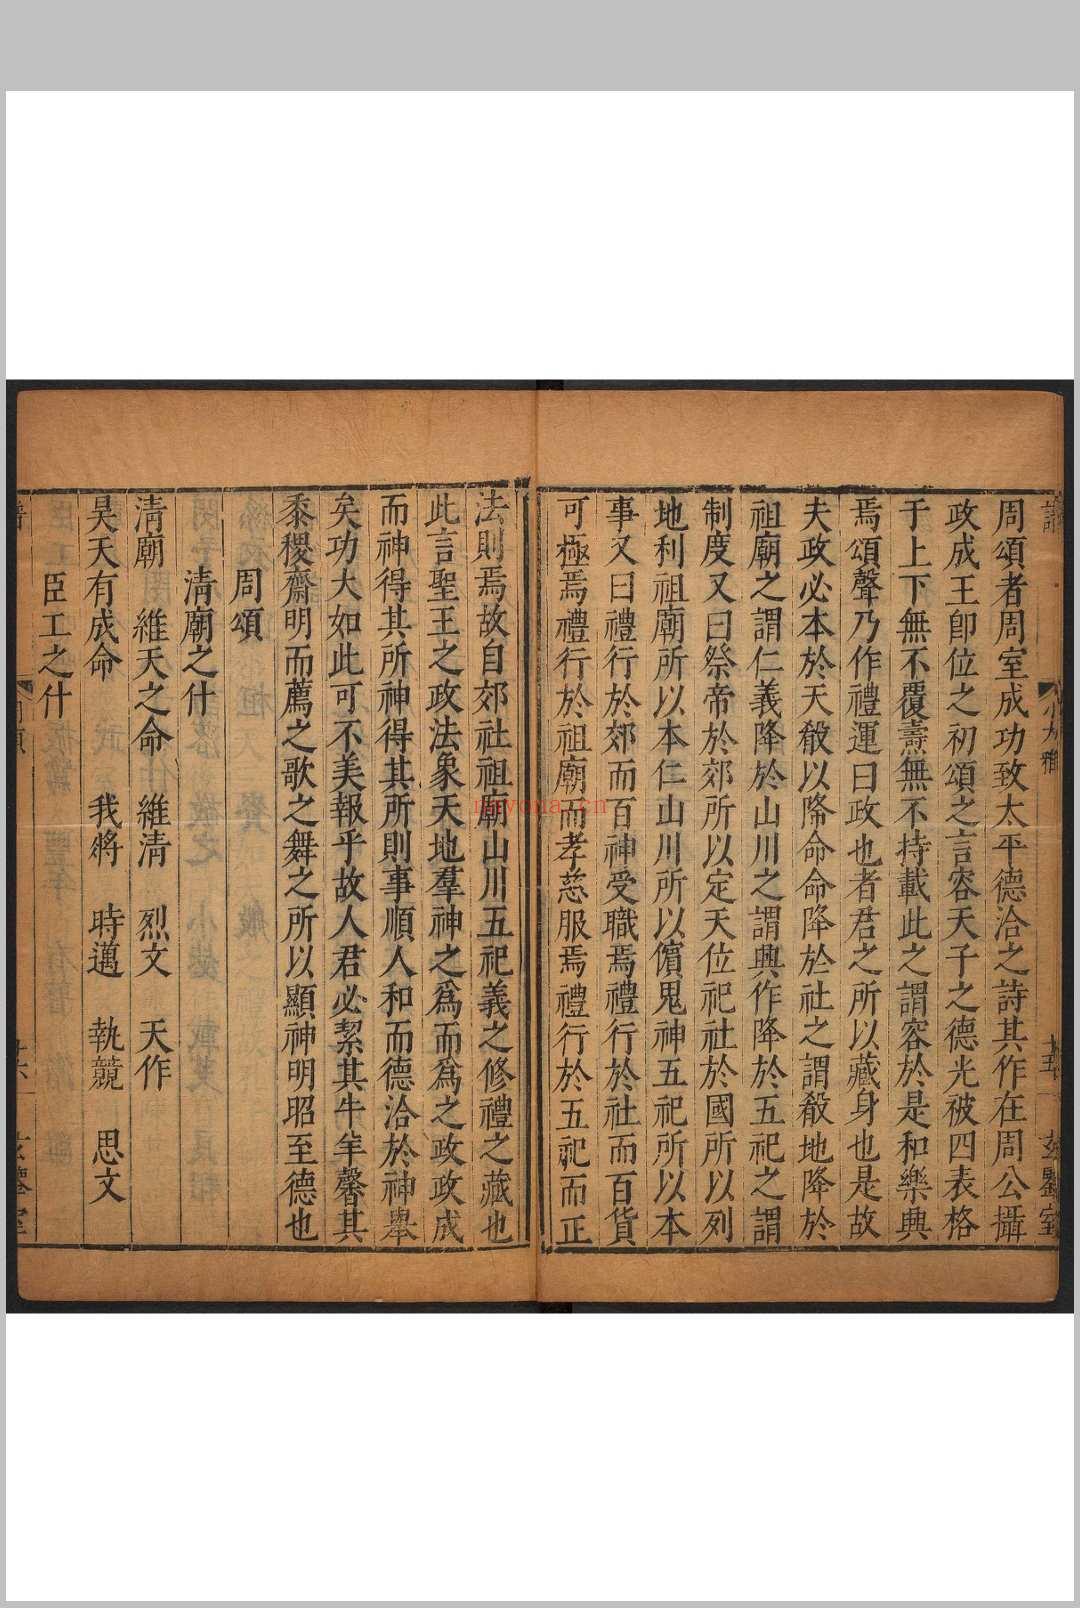 周頌者周室成功致太平德洽之詩其作在周公攝
政成王即位之初頌之言容天子之德光被四表格
于上下無不覆燾無不持載此之謂容於是和樂興
焉頌聲乃作禮運曰政也者君之所以藏身也是故
夫政必本於天殽以降命命降於社之謂殽地降於
祖廟之謂仁義降於山川之謂興作降於五祀之謂
制度又曰祭帝於郊所以定天位祀社於國所以列
地利祖廟所以本仁山川所以儐鬼神五祀所以本
事又曰禮行於郊而百神受職焉禮行於社而百貨
可極焉禮行於祖廟而孝慈服焉禮行於五祀而正
法則焉故自郊社祖廟山川五祀義之修禮之藏也
此言聖王之政法象天地羣神之為而為之政政成
而神得其所神得其所則事順人和而德洽於神舉
矣功大如此可不美報乎故人君必絜其牛羊馨其
黍稷齋明而薦之歌之舞之所以顯神明昭至德也
周頌
清廟之什
清廟 維天之命 維清 烈文 天作
昊天有成命 我將 時邁 執競 思文
臣工之什
小大雅
十五
玄鑒室
nayona.cn